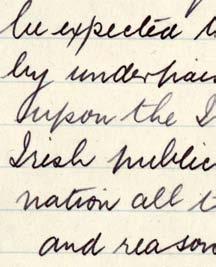 be expected
by underpaid
upon the I
Irish public
nation all t
and reason